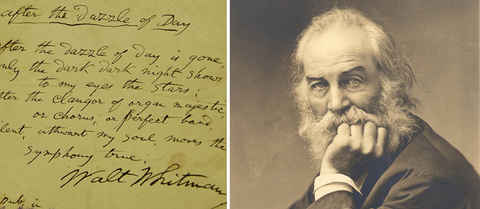 after the dazzle of Day
after the dazzle of day is gone,
only the dark dark night shows
to my eyes the stars;
after the clangor of organ majestic,
or chorus, or perfect band,
silent, athwart my soul, moves the
symphony true.
Walt Whitman
in